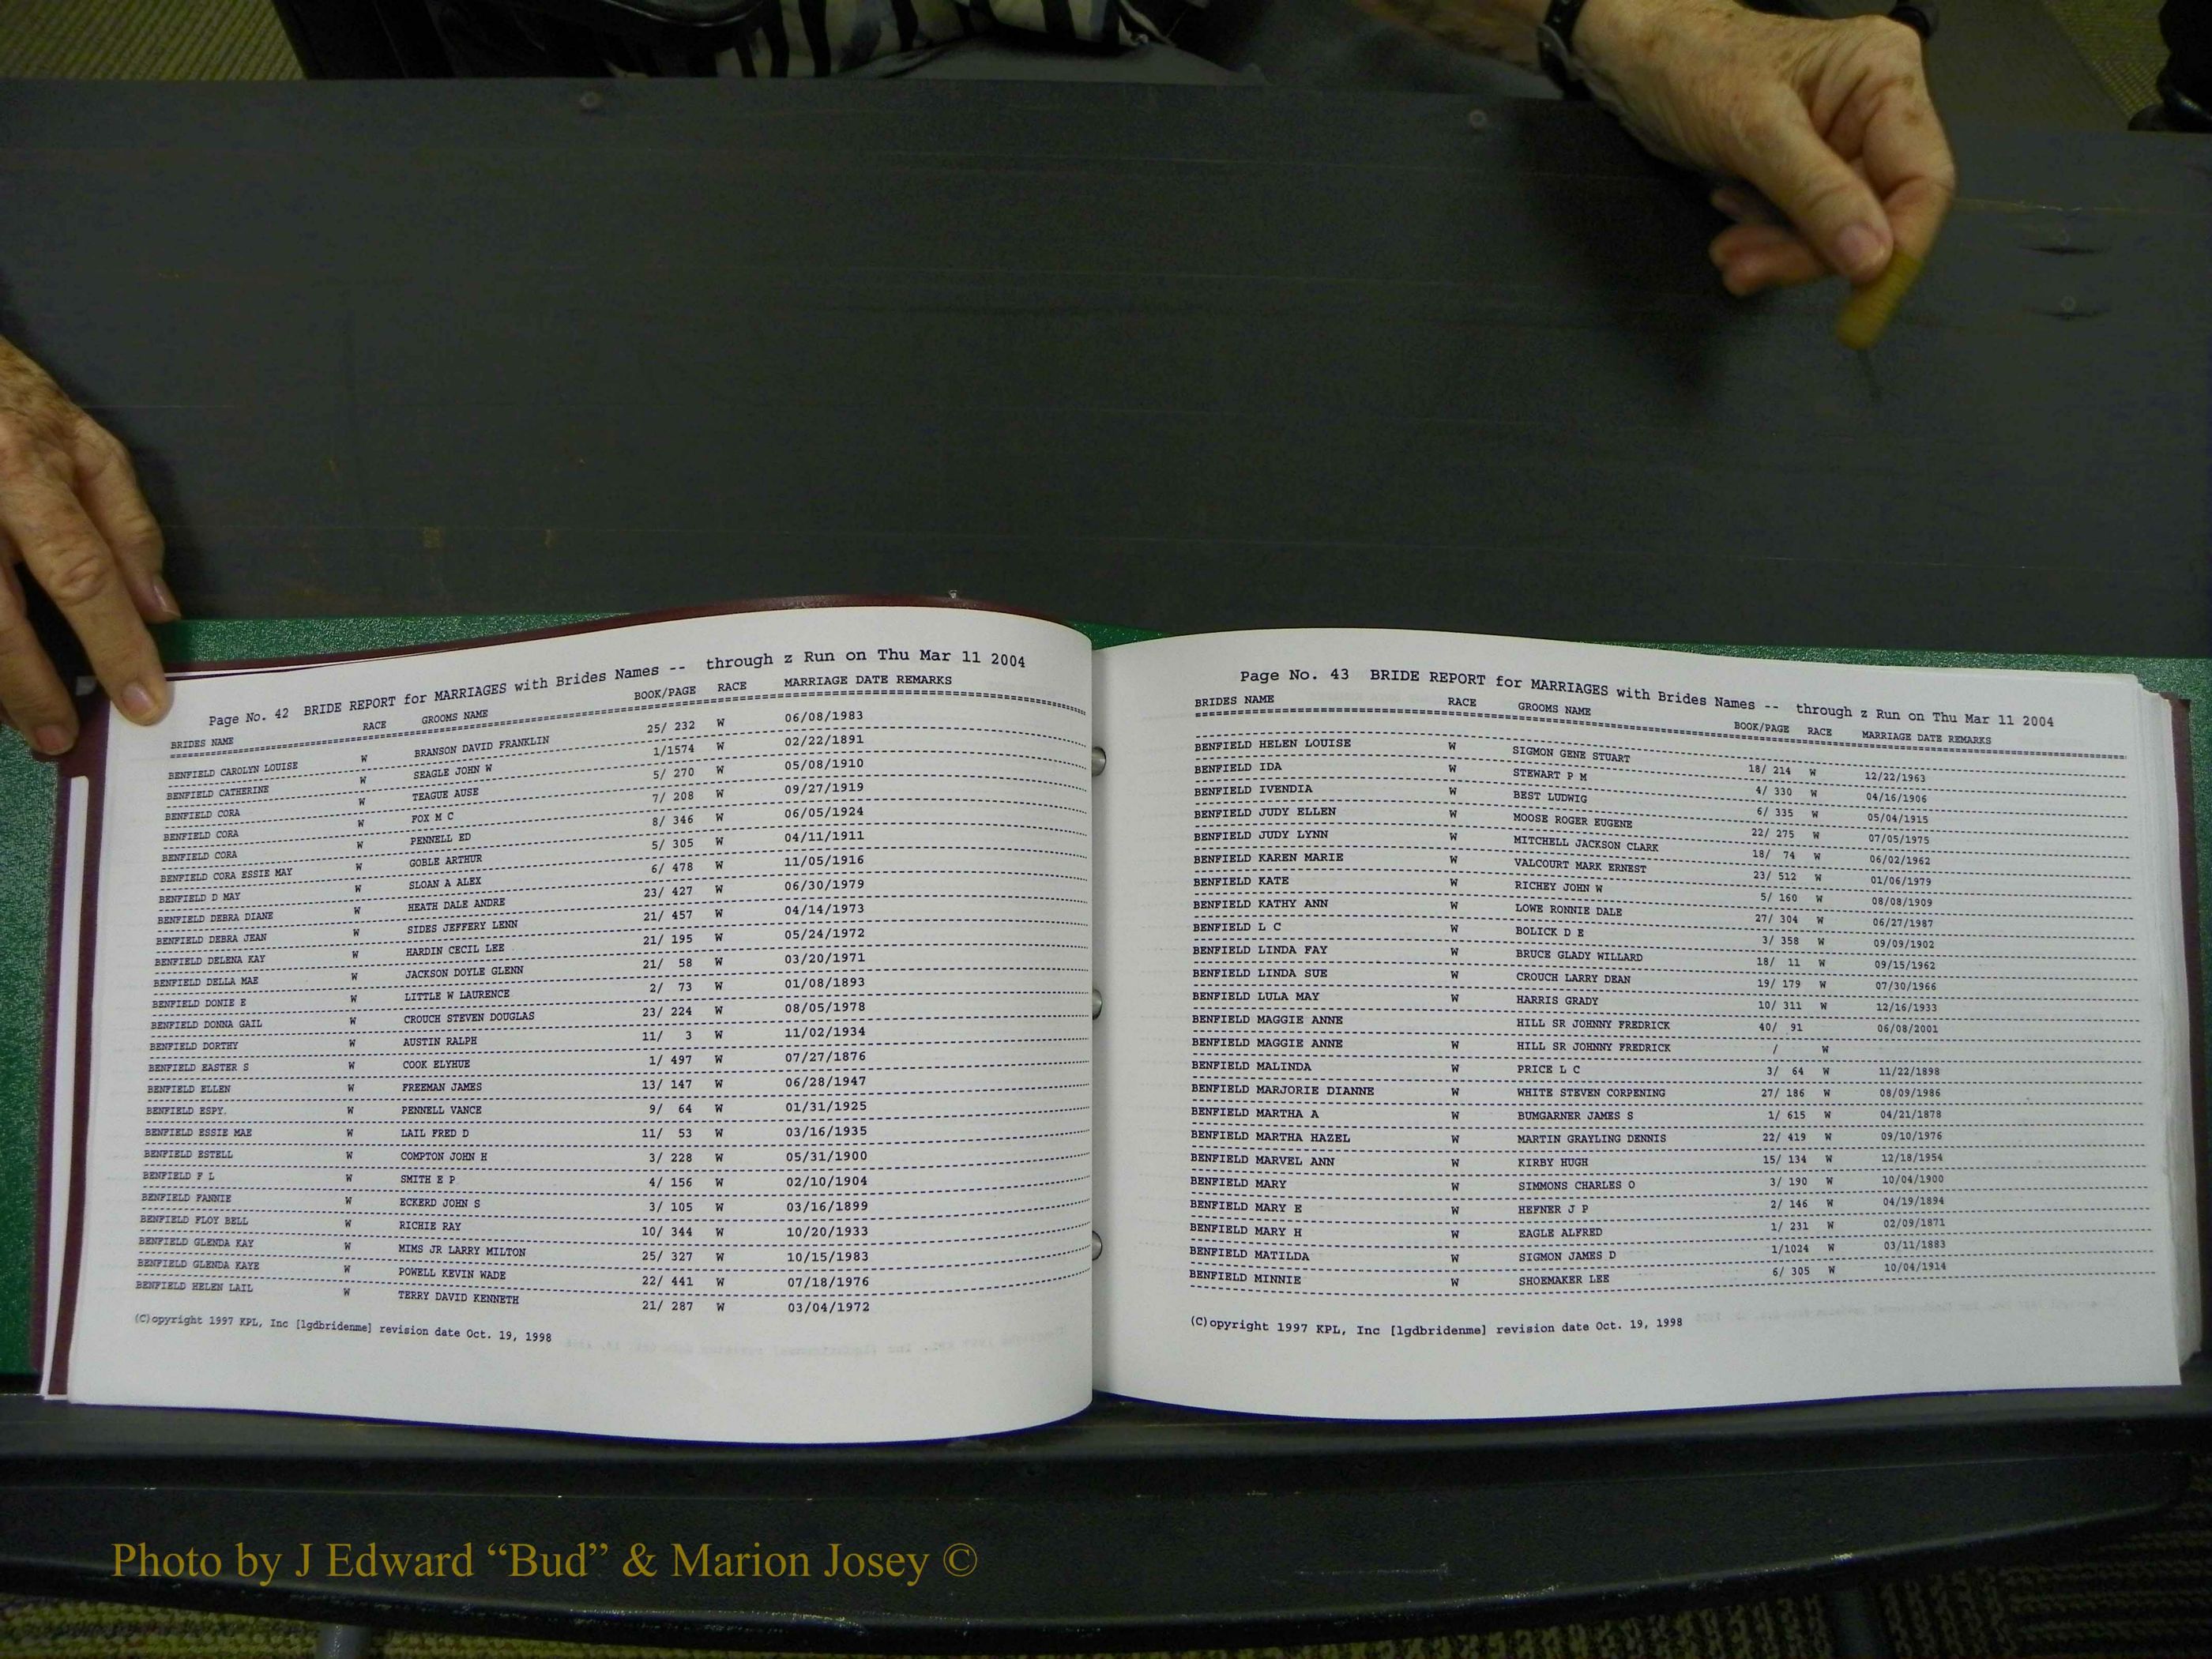 Page No. 42 BRIDE REPORT for MARRIAGES with Brides Names -- through z Run on Thu Mar 11 2004
BRIDES NAME RACE GROOMS NAME BOOK/PAGE RACE MARRIAGE DATE REMARKS
BENFIELD CAROLYN LOUISE W BRANSON DAVID FRANKLIN 25/ 232 W 06/08/1983
BENFIELD CATHERINE W SEAGLE JOHN W 1/1574 W 02/22/1891
BENFIELD CORA W TEAGUE AUSE 5/ 270 W 05/08/1910
BENFIELD CORA W FOX M C 7/ 208 W 09/27/1919
BENFIELD CORA W PENNELL ED 8/ 346 W 06/05/1924
BENFIELD CORA ESSIE MAY W GOBLE ARTHUR 5/ 305 W 04/11/1911
BENFIELD D MAY W SLOAN A ALEX 6/ 478 W 11/05/1916
BENFIELD DEBRA DIANE W HEATH DALE ANDRE 23/ 427 W 06/30/1979
BENFIELD DEBRA JEAN W SIDES JEFFERY LENN 21/ 457 W 04/14/1973
BENFIELD DELENA KAY W HARDIN CECIL LEE 21/ 195 W 05/24/1972
BENFIELD DELLA MAE W JACKSON DOYLE GLENN 21/ 58 W 03/20/1971
BENFIELD DONIE E W LITTLE W LAURENCE 2/ 73 W 01/08/1893
BENFIELD DONNA GAIL W CROUCH STEVEN DOUGLAS 23/ 224 W 08/05/1978
BENFIELD DORTHY W AUSTIN RALPH 11/ 3 W 11/02/1934
BENFIELD EASTER S W COOK ELYHUE 1/ 497 W 07/27/1876
BENFIELD ELLEN W FREEMAN JAMES 13/ 147 W 06/28/1947
BENFIELD ESPY. W PENNELL VANCE 9/ 64 W 01/31/1925
BENFIELD ESSIE MAE W LAIL FRED D 11/ 53 W 03/16/1935
BENFIELD ESTELL W COMPTON JOHN H 3/ 228 W 05/31/1900
BENFIELD F L W SMITH E P 4/ 156 W 02/10/1904
BENFIELD FANNIE W ECKERD JOHN S 3/ 105 W 03/16/1899
BENFIELD FLOY BELL W RICHIE RAY 10/ 344 W 10/20/1933
BENFIELD GLENDA KAY W MIMS JR LARRY MILTON 25/ 327 W 10/15/1983
BENFIELD GLENDA KAYE W POWELL KEVIN WADE 22/ 441 W 07/18/1976
BENFIELD HELEN LAIL W TERRY DAVID KENNETH 21/ 287 W 03/04/1972
(C)opyright 1997 KPL, Inc [lgdbridenme] revision date Oct. 19, 1998
Page No. 43 BRIDE REPORT for MARRIAGES with Brides Names -- through z Run on Thu Mar 11 2004
BRIDES NAME RACE GROOMS NAME BOOK/PAGE RACE MARRIAGE DATE REMARKS
BENFIELD HELEN LOUISE W SIGMON GENE STUART 18/ 214 W 12/22/1963
BENFIELD IDA W STEWART P M 4/ 330 W 04/16/1906
BENFIELD IVENDIA W BEST LUDWIG 6/ 335 W 05/04/1915
BENFIELD JUDY ELLEN W MOOSE ROGER EUGENE 22/ 275 W 07/05/1975
BENFIELD JUDY LYNN W MITCHELL JACKSON CLARK 18/ 74 W 06/02/1962
BENFIELD KAREN MARIE W VALCOURT MARK ERNEST 23/ 512 W 01/06/1979
BENFIELD KATE W RICHEY JOHN W 5/ 160 W 08/08/1909
BENFIELD KATHY ANN W LOWE RONNIE DALE 27/ 304 W 06/27/1987
BENFIELD L C W BOLICK D E 3/ 358 W 09/09/1902
BENFIELD LINDA FAY W BRUCE GLADY WILLARD 18/ 11 W 09/15/1962
BENFIELD LINDA SUE W CROUCH LARRY DEAN 19/ 179 W 07/30/1966
BENFIELD LULA MAY W HARRIS GRADY 10/ 311 W 12/16/1933
BENFIELD MAGGIE ANNE HILL SR JOHNNY FREDRICK 40/ 91 06/08/2001
BENFIELD MAGGIE ANNE W HILL SR JOHNNY FREDRICK / W
BENFIELD MALINDA W PRICE L C 3/ 64 W 11/22/1898
BENFIELD MARJORIE DIANNE W WHITE STEVEN CORPENING 27/ 186 W 08/09/1986
BENFIELD MARTHA A W BUMGARNER JAMES S 1/ 615 W 04/21/1878
BENFIELD MARTHA HAZEL W MARTIN GRAYLING DENNIS 22/ 419 W 09/10/1976
BENFIELD MARVEL ANN W KIRBY HUGH 15/ 134 W 12/18/1954
BENFIELD MARY W SIMMONS CHARLES O 3/ 190 W 10/04/1900
BENFIELD MARY E W HEFNER J P 2/ 146 W 04/19/1894
BENFIELD MARY H W EAGLE ALFRED 1/ 231 W 02/09/1871
BENFIELD MATILDA W SIGMON JAMES D 1/1024 W 03/11/1883
BENFIELD MINNIE W SHOEMAKER LEE 6/ 305 W 10/04/1914
(C)opyright 1997 KPL, Inc [lgdbridenme] revision date Oct. 19, 1998
Photo by J Edward “Bud” & Marion Josey ©